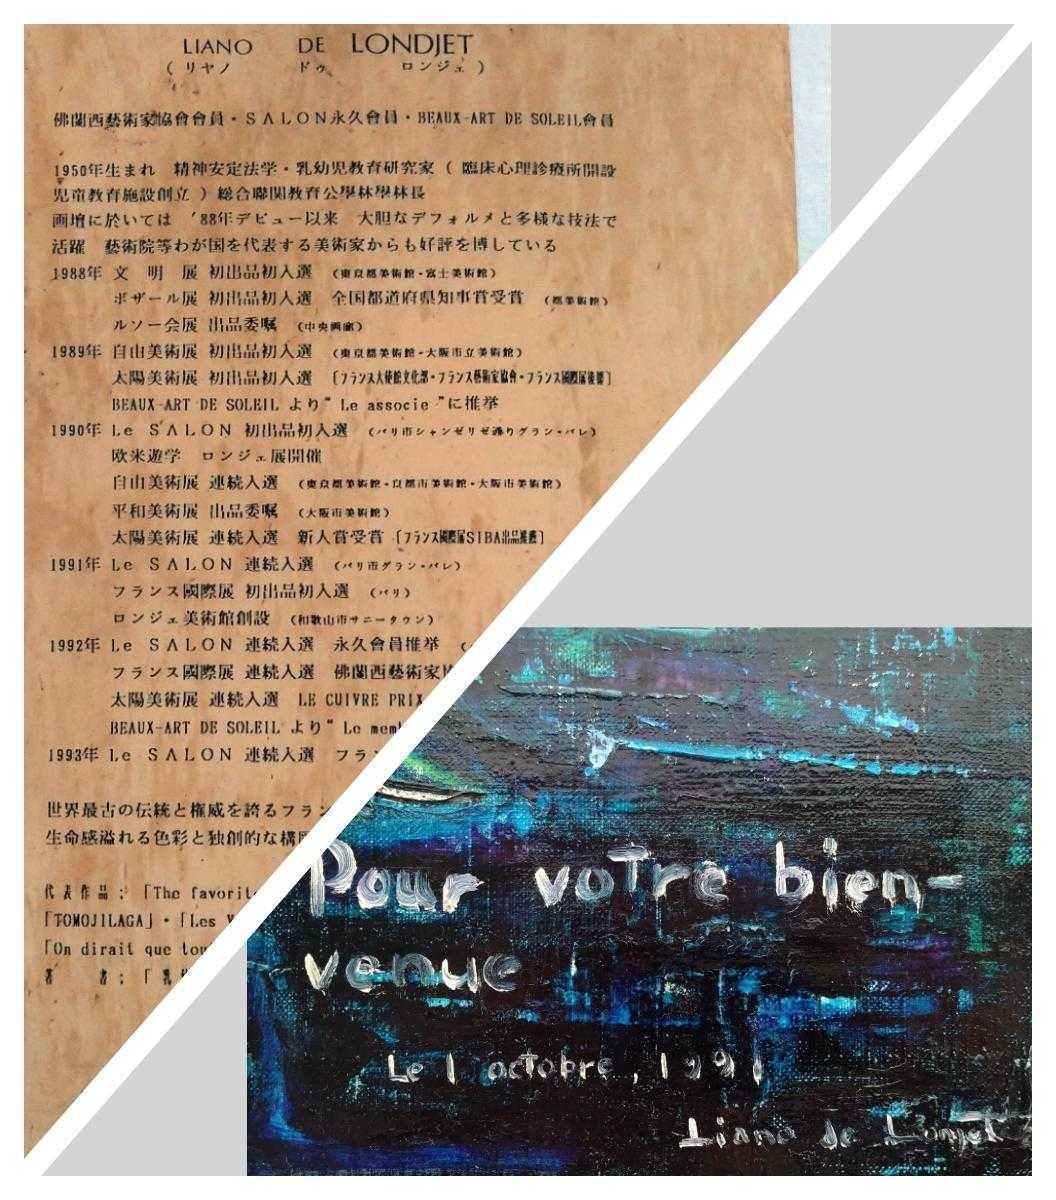 LIANO DE LONDJET
(リヤノ ドゥ ロンジェ)
佛蘭西藝術家協會會員・SALON永久會員・BEAUX-ART DE SOLEIL會員
1950年生まれ 精神安定法学・乳幼児教育研究家(臨床心理診療所開設
児童教育施設創立)総合聯関教育公學林學林長
画壇に於いては '88年デビュー以来 大胆なデフォルメと多様な技法で
活躍 藝術院等わが国を代表する美術家からも好評を博している
1988年 文明展 初出品初入選 (東京都美術館・富士美術館)
ボザール展 初出品初入選 全国都道府県知事賞受賞 (都美術館)
ルソー会展 出品委嘱 (中央画廊)
1989年 自由美術展 初出品初入選 (東京都美術館・大阪市立美術館)
太陽美術展 初出品初入選 [フランス大使館文化部・フランス藝術家協會・フランス國際展後援]
BEAUX-ART DE SOLEIL より“Le associe”に推挙
1990年 Le SALON 初出品初入選 (パリ市シャンゼリゼ通りグラン・パレ)
欧米遊学 ロンジェ展開催
自由美術展 連続入選 (東京都美術館・京都市美術館・大阪市美術館)
平和美術展 出品委嘱 (大阪市美術館)
太陽美術展 連続入選 新人賞受賞 [フランス國際展SIBA出品推薦]
1991年 Le SALON 連続入選 (パリ市グラン・パレ)
フランス國際展 初出品初入選 (パリ)
ロンジェ美術館創設 (和歌山市サニータウン)
1992年 Le SALON 連続入選 永久會員推挙
フランス國際展 連続入選 佛蘭西藝術家協
太陽美術展 連続入選 LE CUIVRE PRIX
BEAUX-ART DE SOLEIL より“Le mem
1993年 Le SALON 連続入選 フラン
世界最古の伝統と権威を誇るフラン
生命感溢れる色彩と独創的な構図
代表作品;「The favorite
「TOMOJILAGA」・「Les
「On dirait que tou
著 書;「乳
Pour votre bien-
venue
Le 1 octobre, 1991
Liano de Londjet